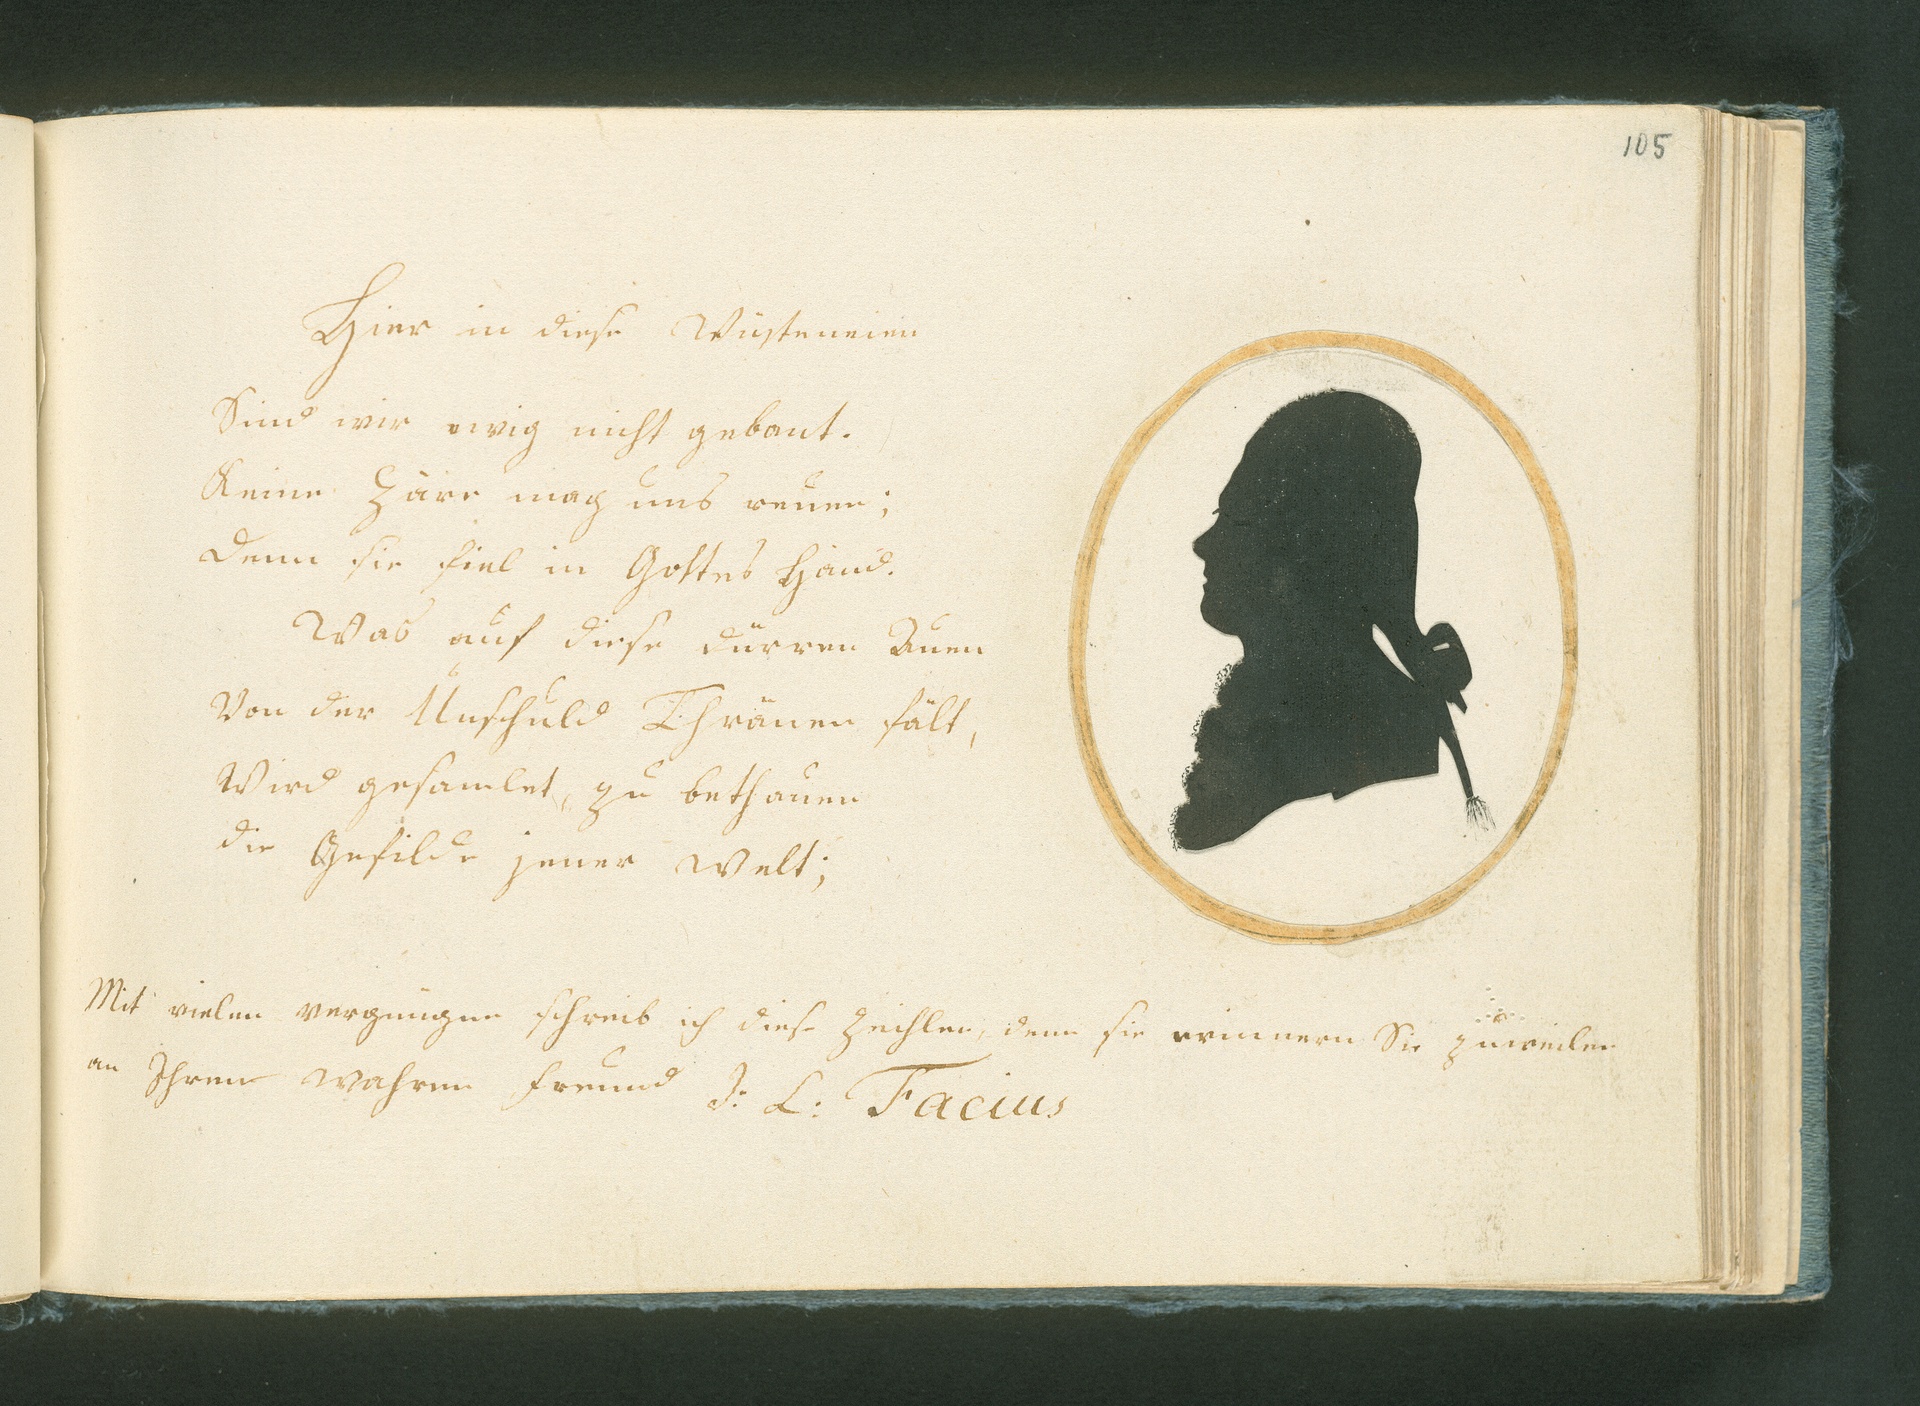 105
Hier in diese Wüsteneien
Sind wir ewig nicht gebant.
Keine Zäre mag uns reuen;
Denn sie fiel in Gottes Hand.
Was auf diese dürren Auen
Von der Unschuld Thränen fält,
Wird gesamlet, zu bethauen
die Gefilde jener Welt;
Mit vielen vergnügen schreib ich diese Zeihlen, denn sie erinnern Sie zuweilen
an Ihren wahren freund J: L: Facius